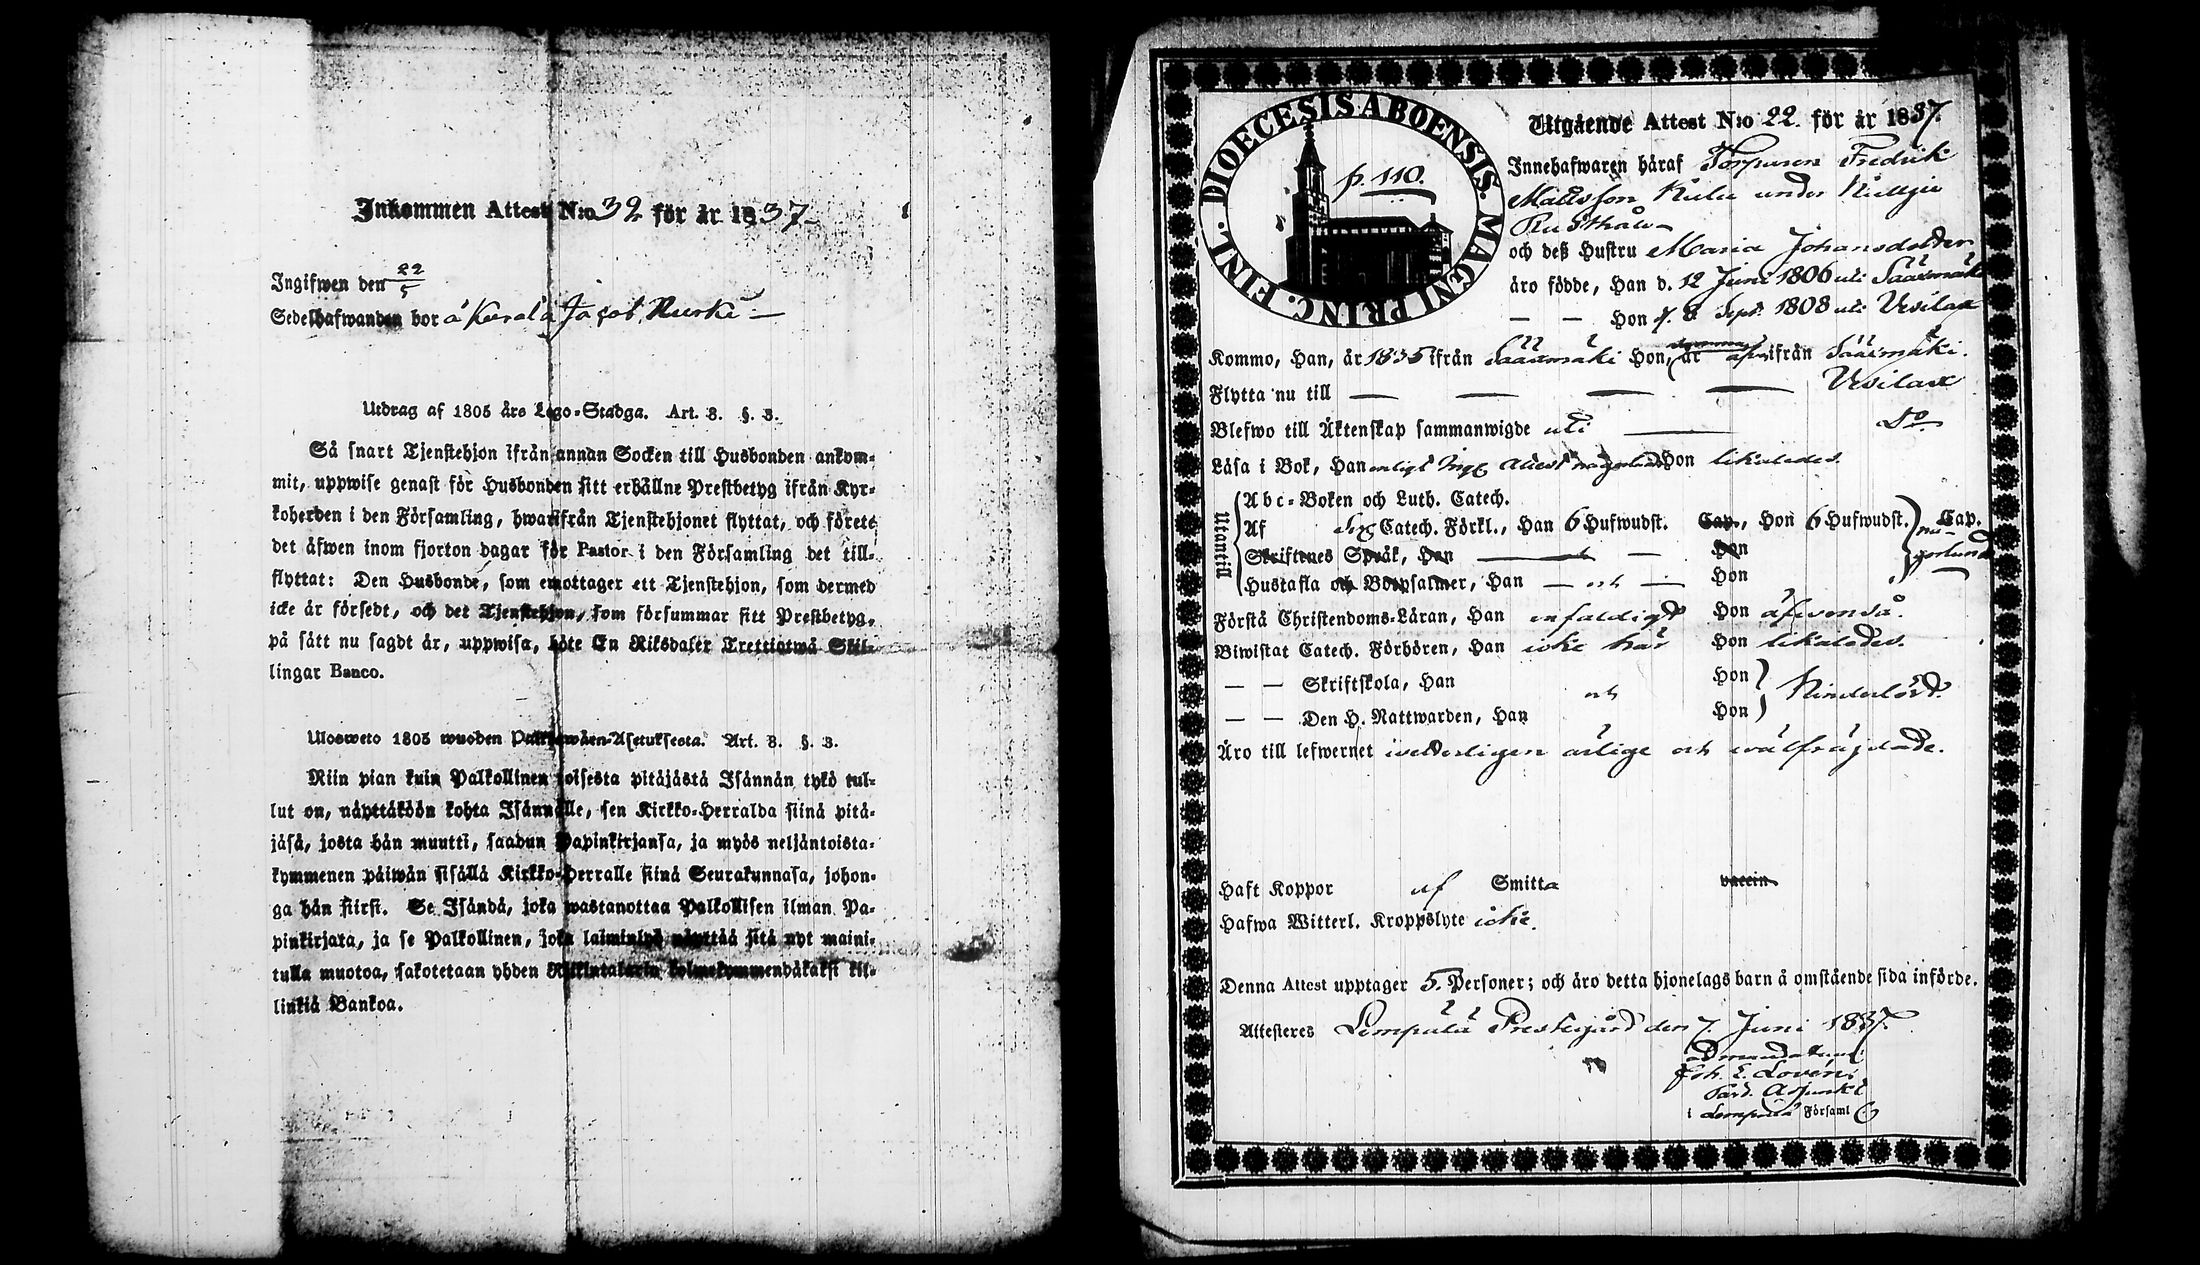 Inkommen Attest N:o 32 för år 1837.
Ingifwen den 22/5
Sedelhafwanden bor å Kärålä Jacob
Utdrag af 1805 års Lego-Stadga. Art. 8. §. 3.
Så snart Tjenstehjon ifrån annan Socken till Husbonden ankom-
mit, uppwise genast för Husbonden sitt erhållne Prestbetyg ifrån Kyr-
koherden i den Församling, hwarifrån Tjenstehjonet flyttat, och förete
det äfwen inom fjorton dagar för Pastor i den Församling det till-
flyttat: Den Husbonde, som emottager ett Tjenstehjon, som dermed
icke är försedt, och det Tjenstehjon, som försummar sitt Prestbetyg,
på sätt nu sagdt är, uppwisa, böte En Riksdaler Trettiotwå Skil-
lingar Banco.
Ulosweto 1805 wuoden Palkkawäen-Asetuksesta. Art. 8. §. 3.
Niin pian kuin Palkollinen toisesta pitäjästä Isännän tykö tul-
lut on, näyttäköön kohta Isännälle, sen Kirkko-Herralda siinä pitä-
jäsä, josta hän muutti, saadun Papinkirjansa, ja myös neljäntoista-
kymmenen päiwän sisällä Kirkko-Herralle siinä Seurakunnasa, johon-
ga hän siirsi. Se Isändä, joka wastanottaa Palkollisen ilman Pa-
pinkirjata, ja se Palkollinen, joka laiminlyö näyttää sitä nyt maini-
tulla muotoa, sakotetaan yhden Riikintalarin kolmekymmendäkaksi kil-
linkiä Bankoa.
DIOECESIS ABOENSIS. MAGNI PRINC. FINL.
p. 110.
Utgående Attest N:o 22 för år 1837.
Innehafwaren häraf Torparen Fredrik
Mattsson under
Rusthåll
och deß Hustru Maria Johansdotter
äro födde, Han d. 12 Juni 1806 uti Sääxmäki
— — Hon d. 8 Sept. 1808 uti Vesilax
Kommo, Han, år 1835 ifrån Sääxmäki Hon, år ifrån Sääxmäki.
Flytta nu till — — — — Vesilax
Blefwo till Äktenskap sammanwigde uti — Do
Läsa i Bok, Han enligt Hon likaledes.
Utantill
Abc-Boken och Luth. Catech.
Af Catech. Förkl., Han 6 Hufwudst. Cap., Hon 6 Hufwudst. Cap.
Skriftenes Språk, Han — och — Hon
Hustafla och Botpsalmer, Han — och — Hon
Förstå Christendoms-Läran, Han enfaldigt Hon äfvenså.
Biwistat Catech. Förhören, Han icke här Hon likaledes.
— — Skriftskola, Han och Hon
— — Den H. Nattwarden, Han Hon
Äro till lefwernet wetterligen ärlige och wälfrägdade.
Haft Koppor af Smitta vaccin
Hafwa Witterl. Kroppslyte icke.
Denna Attest upptager 5. Personer; och äro detta hjonelags barn å omstående sida införde.
Attesteres Lempälä Prestegård den 7. Juni 1837.
ad mandatum
Joh. E. Lovén.
Past. Adjunkt
i Lempälä Församl